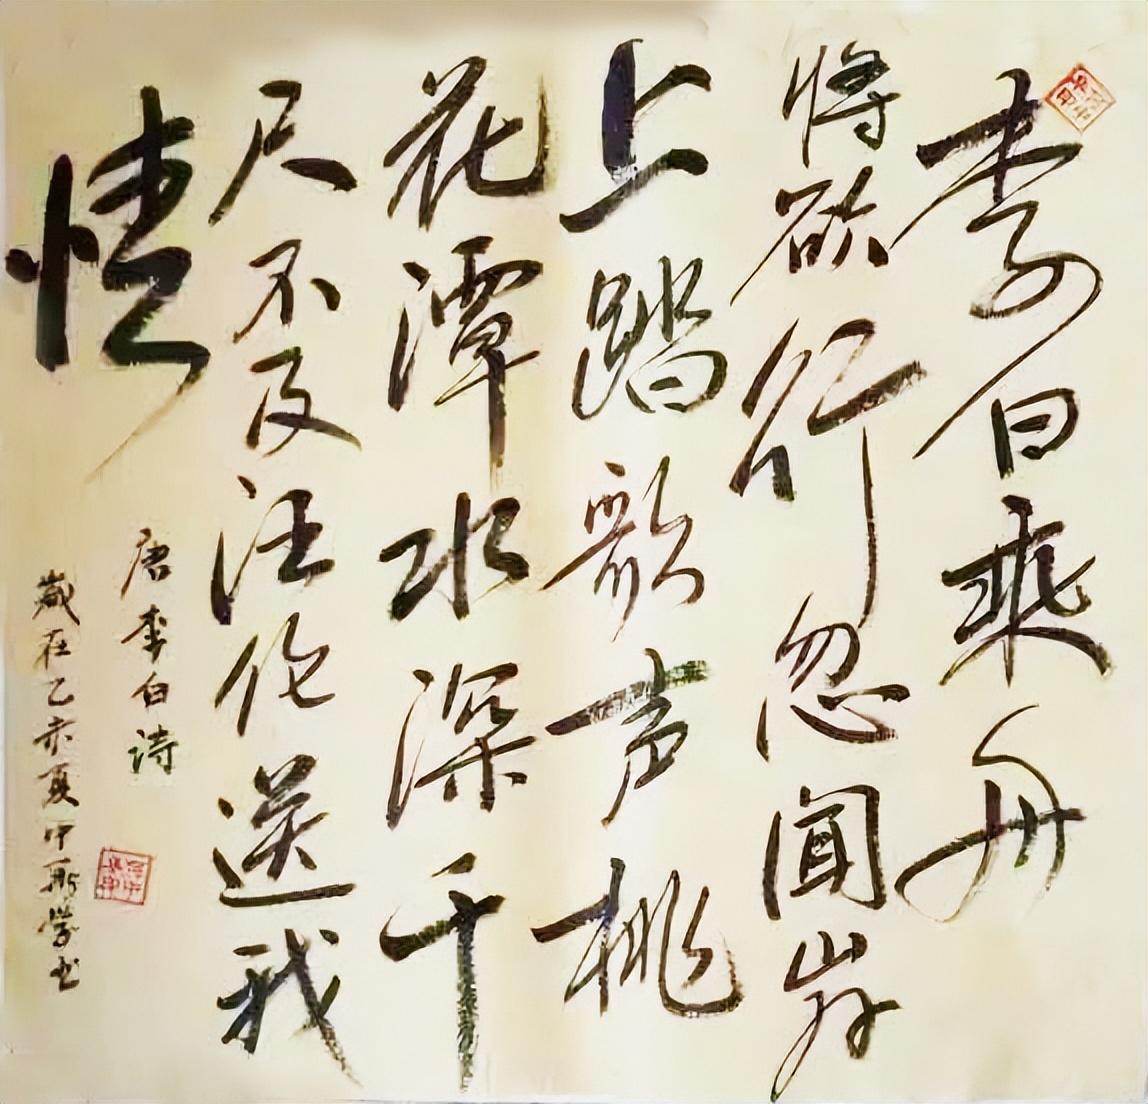 李白乘舟
将欲行忽闻岸
上踏歌声桃
花潭水深千
尺不及汪伦送我
情
唐李白诗
岁在乙亥夏中斯学书